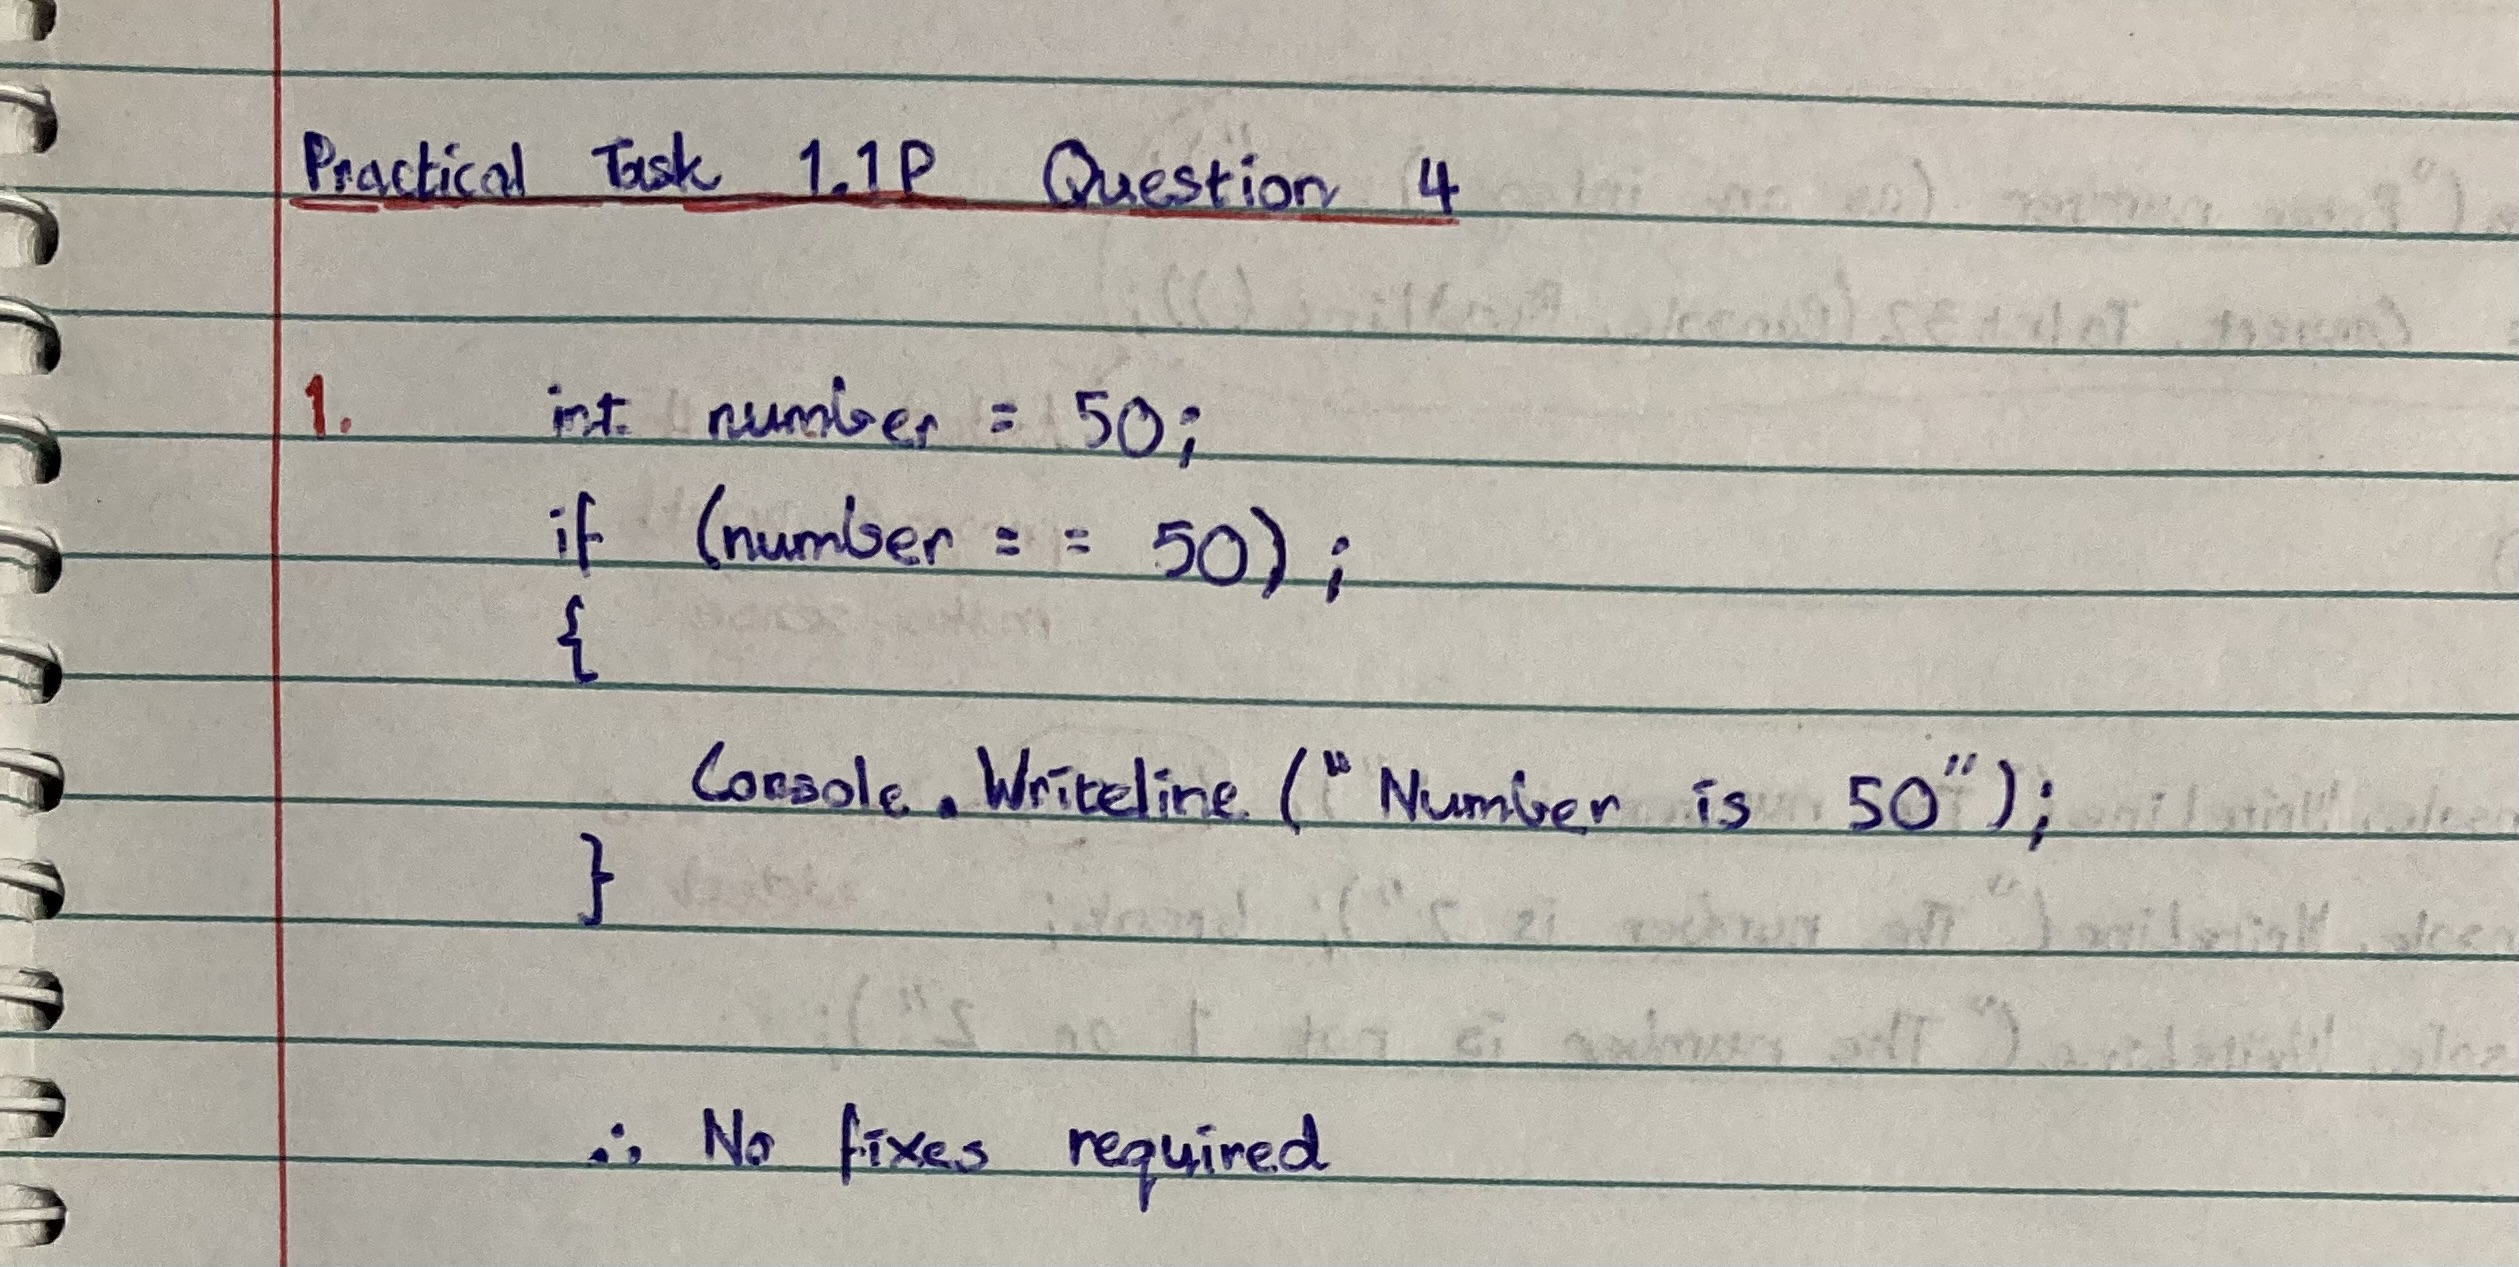 Practical Task 1.1P Question 4
1. int number = 50;
if (number = = 50) ;
{
Console. Writeline ("Number is 50");
}
∴ No fixes required